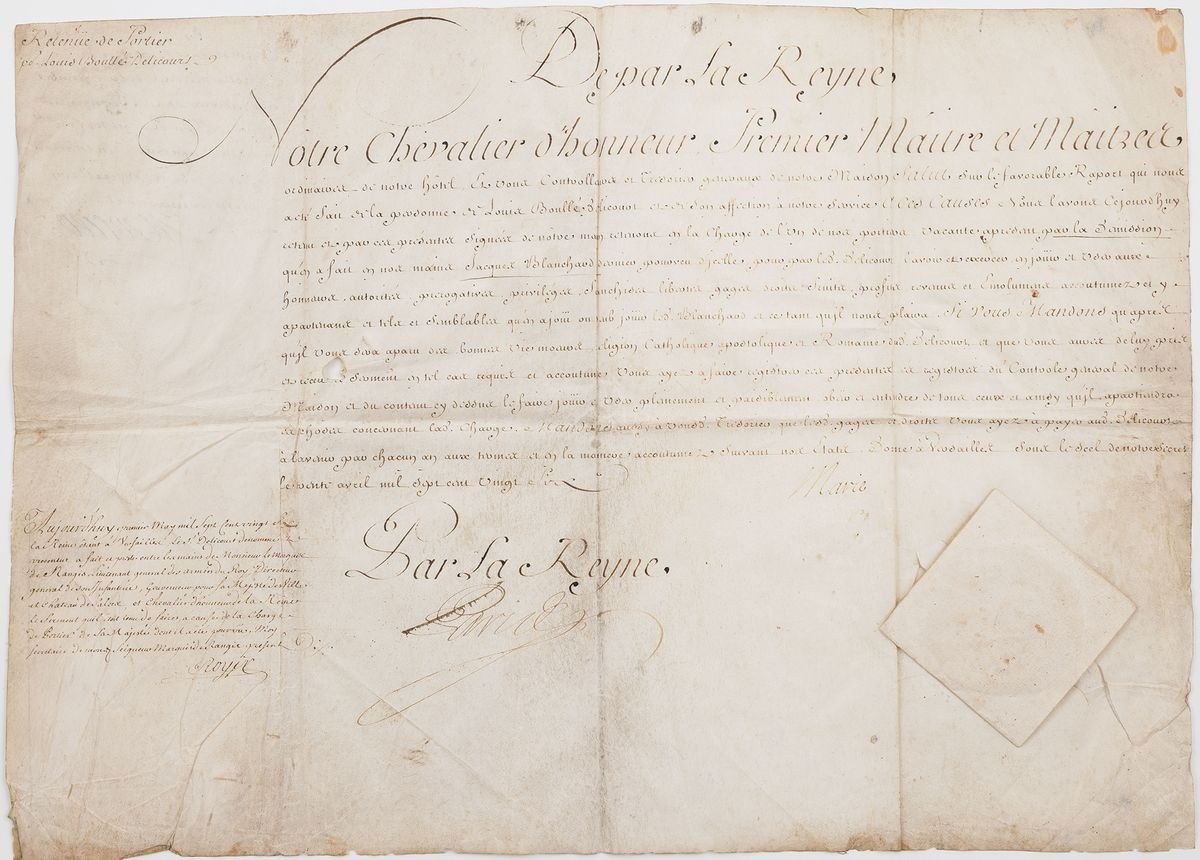 Retenüe de Portier
pr. Louis Boullé Delicourt
De par La Reyne,
Notre Chevalier d'honneur, Premier Maitre et Maitres
ordinaires de notre hôtel, Et vous Controlleurs et Tresoriers generaux de notre Maison Salut Sur le favorable Raport qui nous
a eté fait de la personne de Louis Boullé Delicourt et de son affection à notre service A Ces Causes Nous l'avons Cejourdhuy
retenu et par ces presentes signées de notre main retenons en la Charge de l'Un de nos portiers vacante apresent par la Demission
qu'en a fait en nos mains Jacques Blanchard dernier pourveu d'jcelle, pour par led. Delicourt l'avoir et exercer, en jouir et User aux
honneurs, autorités, prerogatives, privileges, franchises, libertés, gages, droits, fruits, profits, revenus et Emolumens accoutumez et y
apartenans et tels et semblables qu'en a joüi ou dub joüir led. Blanchard et ce tant qu'jl nous plaira. Si Vous Mandons qu'aprés
qu'jl Vous sera aparu des bonnes Vie moeurs religion Catholique, apostolique et Romaine dud. Delicourt, et que vous aurez de luy pris
et receu le serment en tel cas requis et accoutumé Vous ayez à faire registrer ces presentes es registres du Controle general de notre
Maison et du contenu cy dessus le faire joüir et User plainement et paisiblement obeir et entendre de tous ceux et ainsy qu'jl apartiendra
es choses concernant lad. Charge. Mandons aussy à Vousd. Tresoriers que lesd. gages et droits Vous ayez à payer aud. Delicourt
à l'avenir par chacun an aux termes et en la maniere accoutumez suivant nos Etats. Donné à Versailles sous le scel de notre secret
le trente avril mil sept cent vingt six
Marie
Aujourd'huy premier May mil Sept Cent vingt Six
la Reine étant à Versailles le Sr. Delicourt denommé
presentes a fait et presté entre les mains de Monsieur le Marquis
de Nangis Lieutenant general des armées du Roy Directeur
general de son Infanterie, Gouverneur pour Sa Majesté des Ville
et Chateau de Salces, et Chevalier d'honneur de la Reine
le Serment qu'il étoit tenu de faire, a cause de la Charge
de Portier de Sa Majesté dont il a été pourveu. Moy
Secretaire de mond. Seigneur Marquis de Nangis present
Par La Reyne,